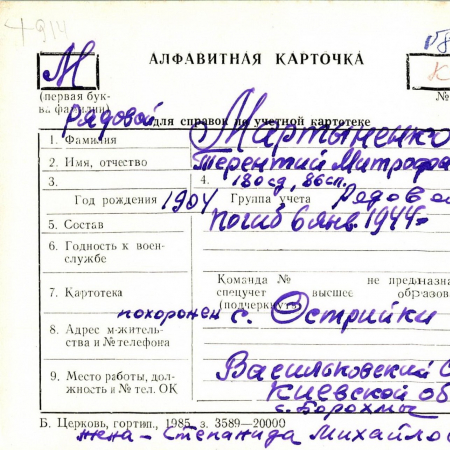 +914
М
АЛФАВИТНАЯ КАРТОЧКА
(первая бук-
ва фамилии)
№
Рядовой
для справок по учетной картотеке
1. Фамилия Мартыненко
2. Имя, отчество Терентий Митрофа
3. 4. 180сд, 86сп.
Год рождения 1904 Группа учета Рядовой
5. Состав погиб 6 янв. 1944г
6. Годность к воен-
службе
Команда № не предназна
7. Картотека спецучет высшее образова
(подчеркнуть)
похоронен с. Острийки
8. Адрес м-житель-
ства и № телефона
Васильковский
9. Место работы, дол-
жность и № тел. ОК
Киевской об
Б. Церковь, гортип., 1985, з. 3589—20000
жена - Степанида Михайло